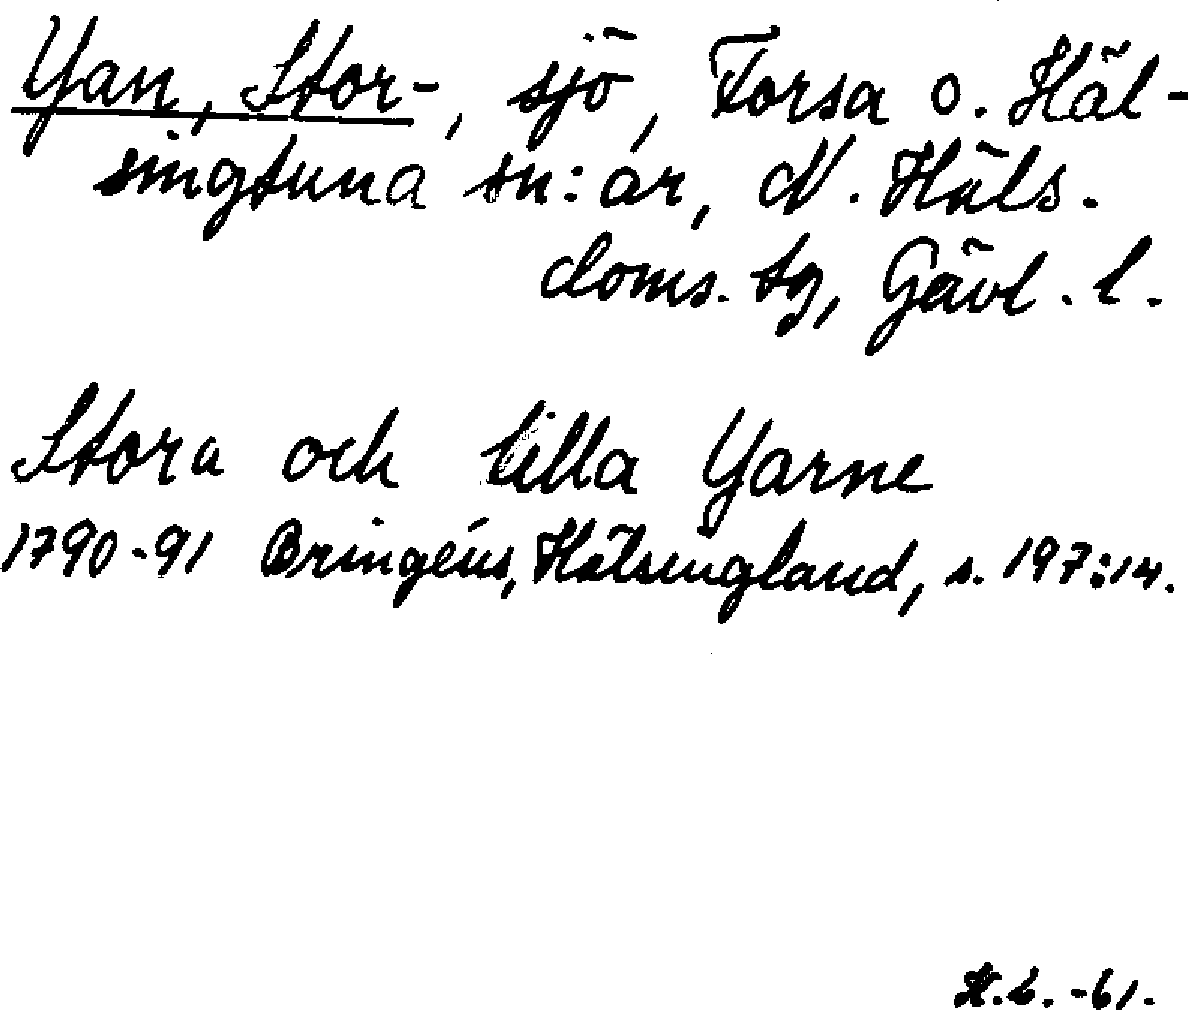 Yan, Stor-, sjö, Forsa o. Häl-
singtuna sn:ar, N. Häls.
doms. tg, Gävl. l.
Stora och Lilla Yarne
1790-91 Bringéus, Hälsingland, s. 197:14.
H.L. -61.